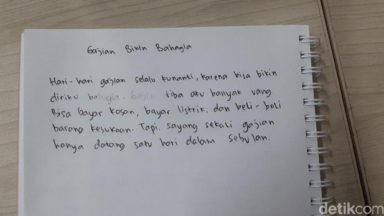 Gajian Bikin Bahagia
Hari-hari gajian selalu kunanti, karena bisa bikin
diriku bahagia. Gajian tiba aku banyak uang
Bisa bayar kosan, bayar listrik, dan beli-beli
barang kesukaan. Tapi, sayang sekali gajian
hanya datang satu hari dalam sebulan.
detikcom